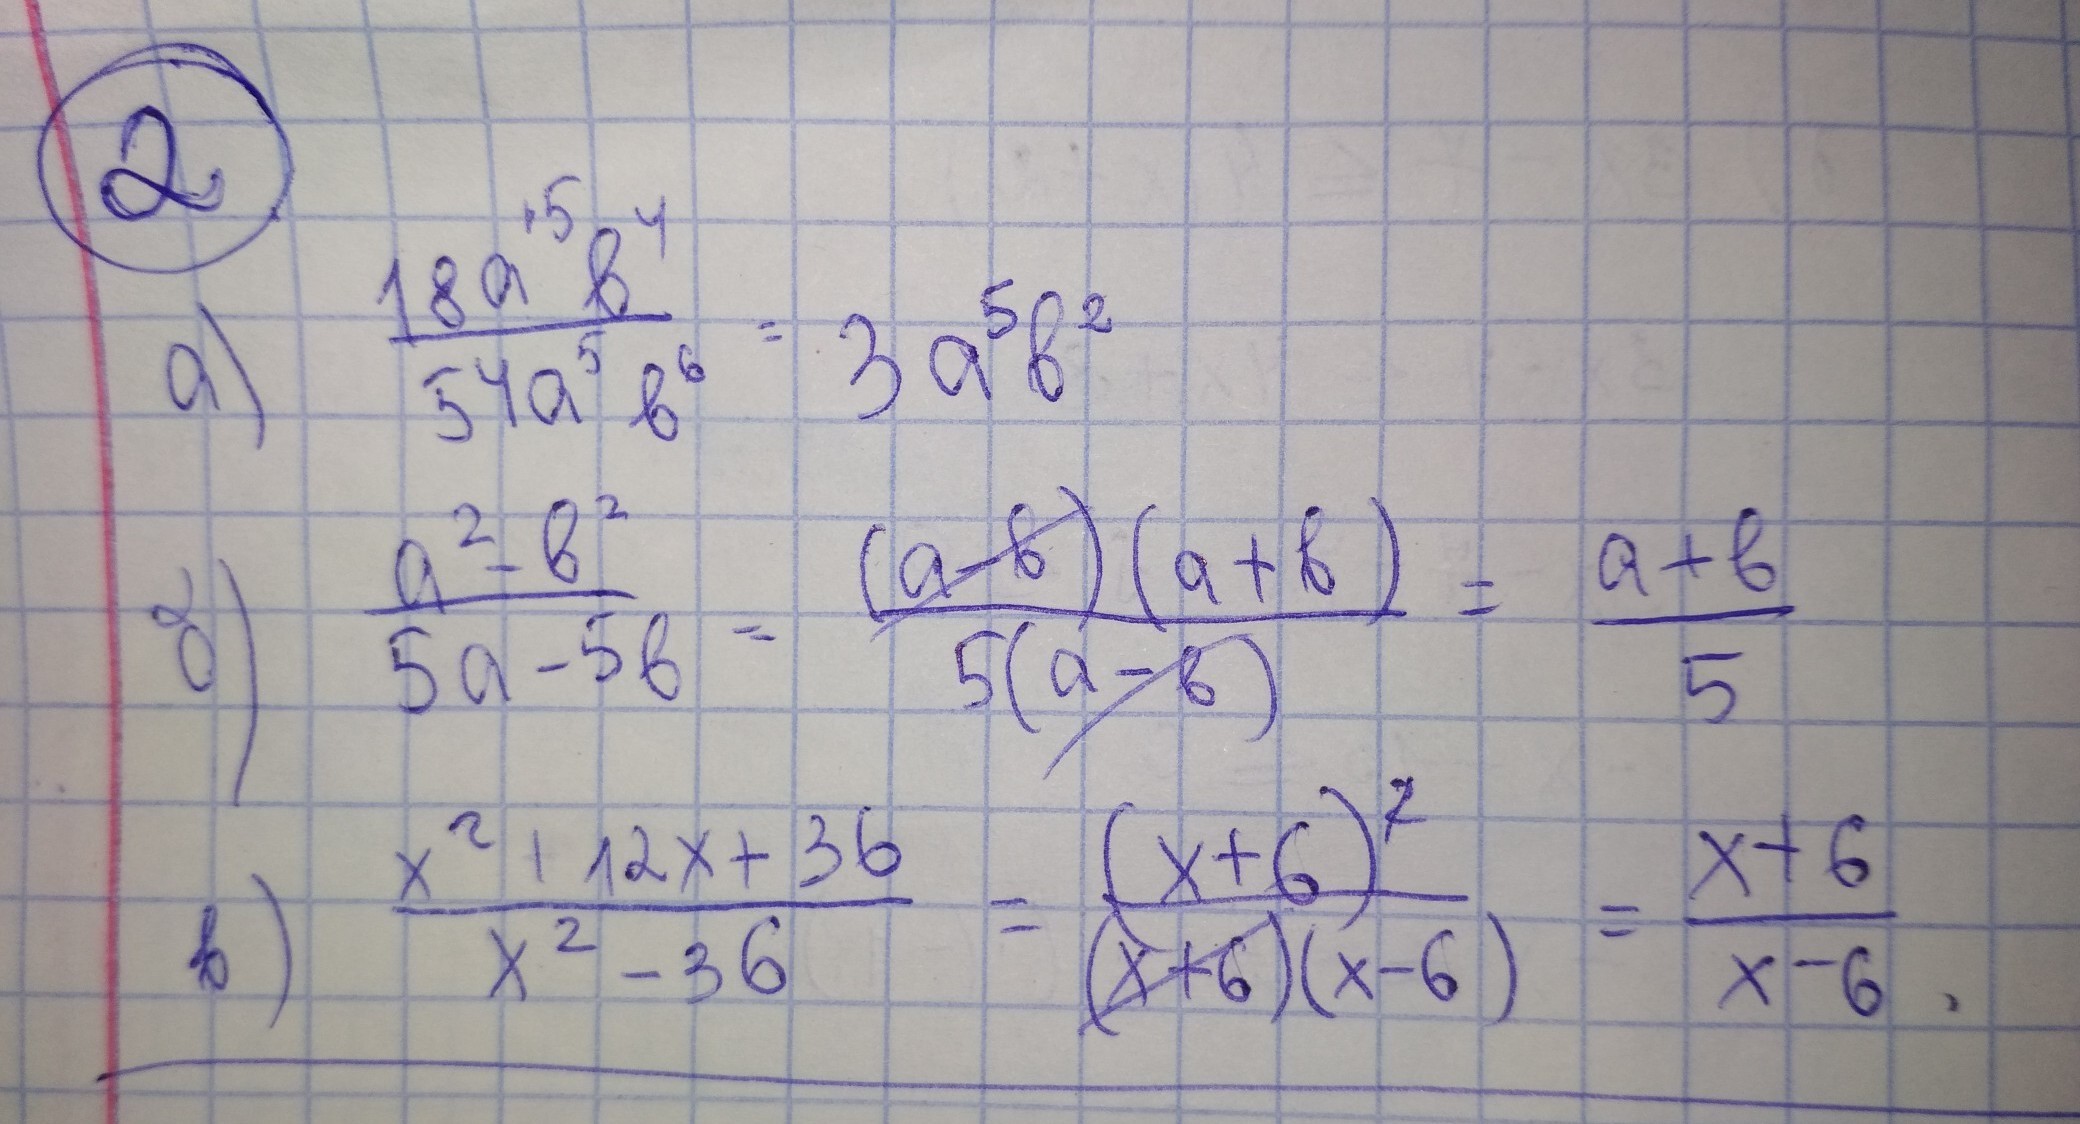 2
а) 18a^15 b^4 / 54a^5 b^6 = 3a^5 b^2
б) a^2 - b^2 / 5a - 5b = (a-b)(a+b) / 5(a-b) = a+b / 5
в) x^2 + 12x + 36 / x^2 - 36 = (x+6)^2 / (x+6)(x-6) = x+6 / x-6 .